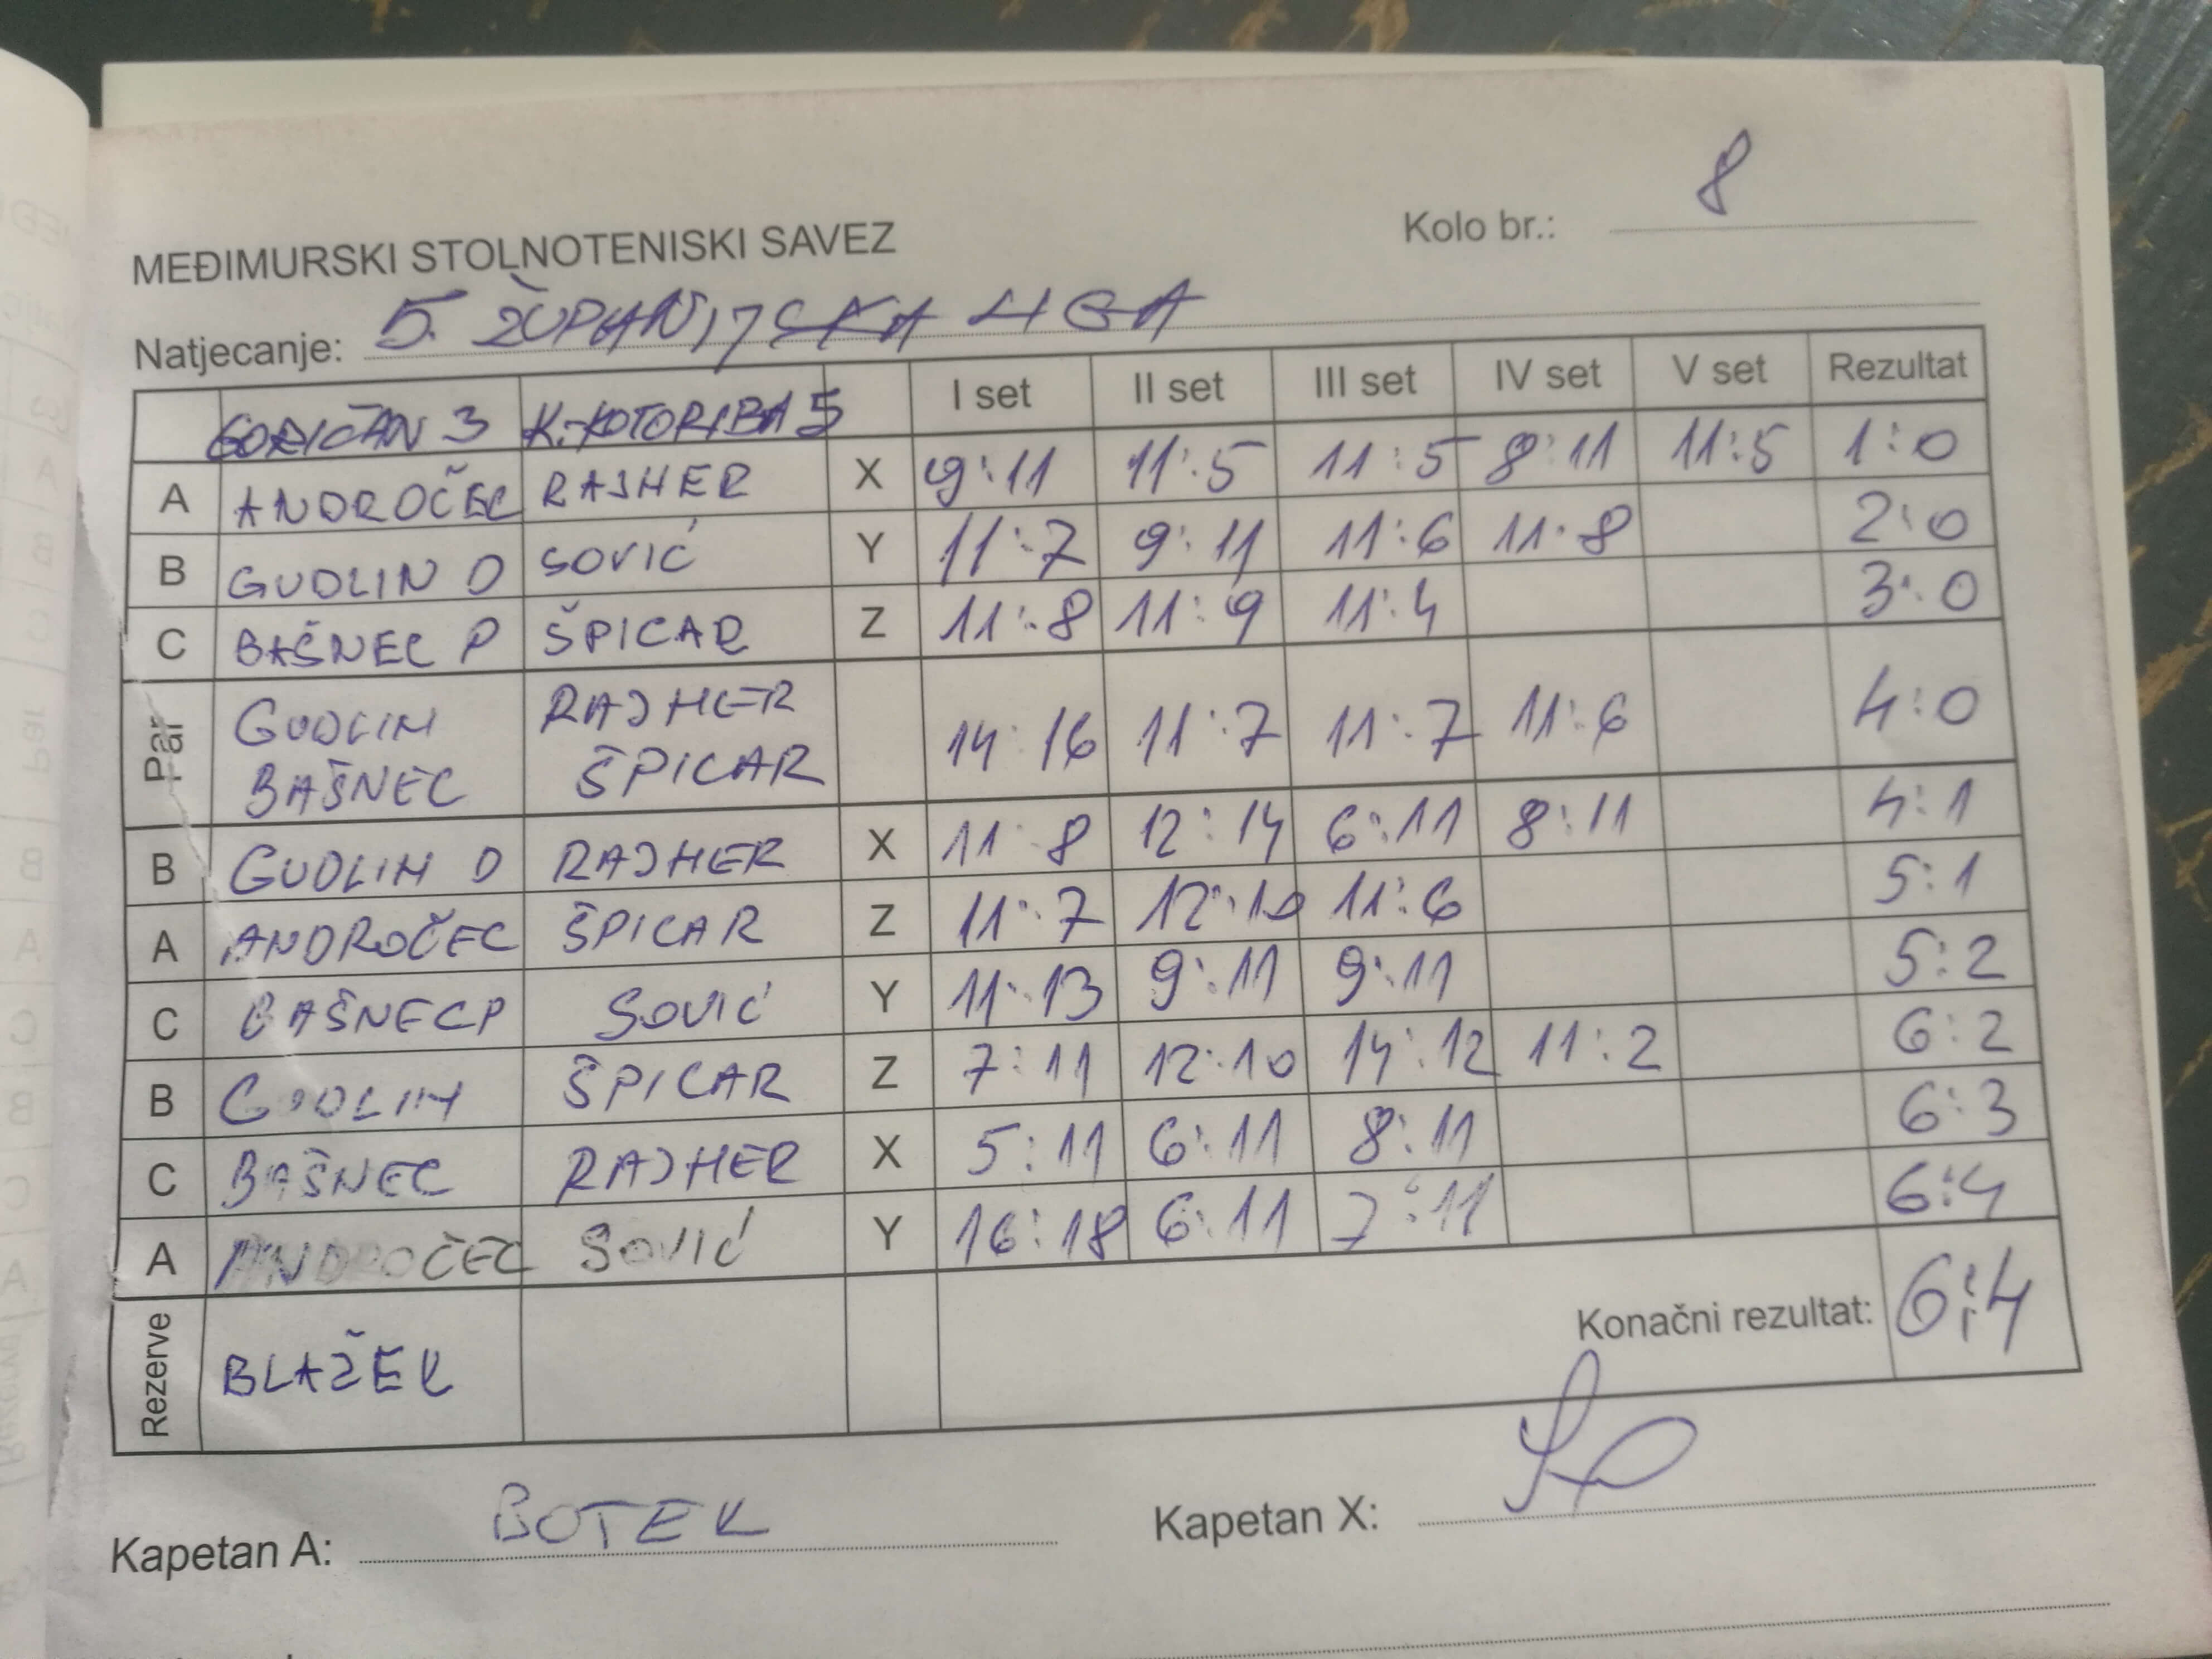 Kolo br.: 8
MEĐIMURSKI STOLNOTENISKI SAVEZ
Natjecanje: 5. ŽUPANIJSKA LIGA
GORIČAN 3 K.-KOTORIBA 5 I set II set III set IV set V set Rezultat
A ANDROČEC RAJHER X 9:11 11:5 11:5 8:11 11:5 1:0
B GUDLIN D SOVIĆ Y 11:7 9:11 11:6 11:8 2:0
C BAŠNEC P ŠPICAR Z 11:8 11:9 11:4 3:0
Par GUDLIN BAŠNEC RAJHER ŠPICAR 14:16 11:7 11:7 11:6 4:0
B GUDLIN D RAJHER X 11:8 12:14 6:11 8:11 4:1
A ANDROČEC ŠPICAR Z 11:7 12:10 11:6 5:1
C BAŠNEC P SOVIĆ Y 11:13 9:11 9:11 5:2
B GUDLIN ŠPICAR Z 7:11 12:10 14:12 11:2 6:2
C BAŠNEC RAJHER X 5:11 6:11 8:11 6:3
A ANDROČEC SOVIĆ Y 16:18 6:11 7:11 6:4
Rezerve BLAŽEK Konačni rezultat: 6:4
Kapetan A: BOTEK Kapetan X: